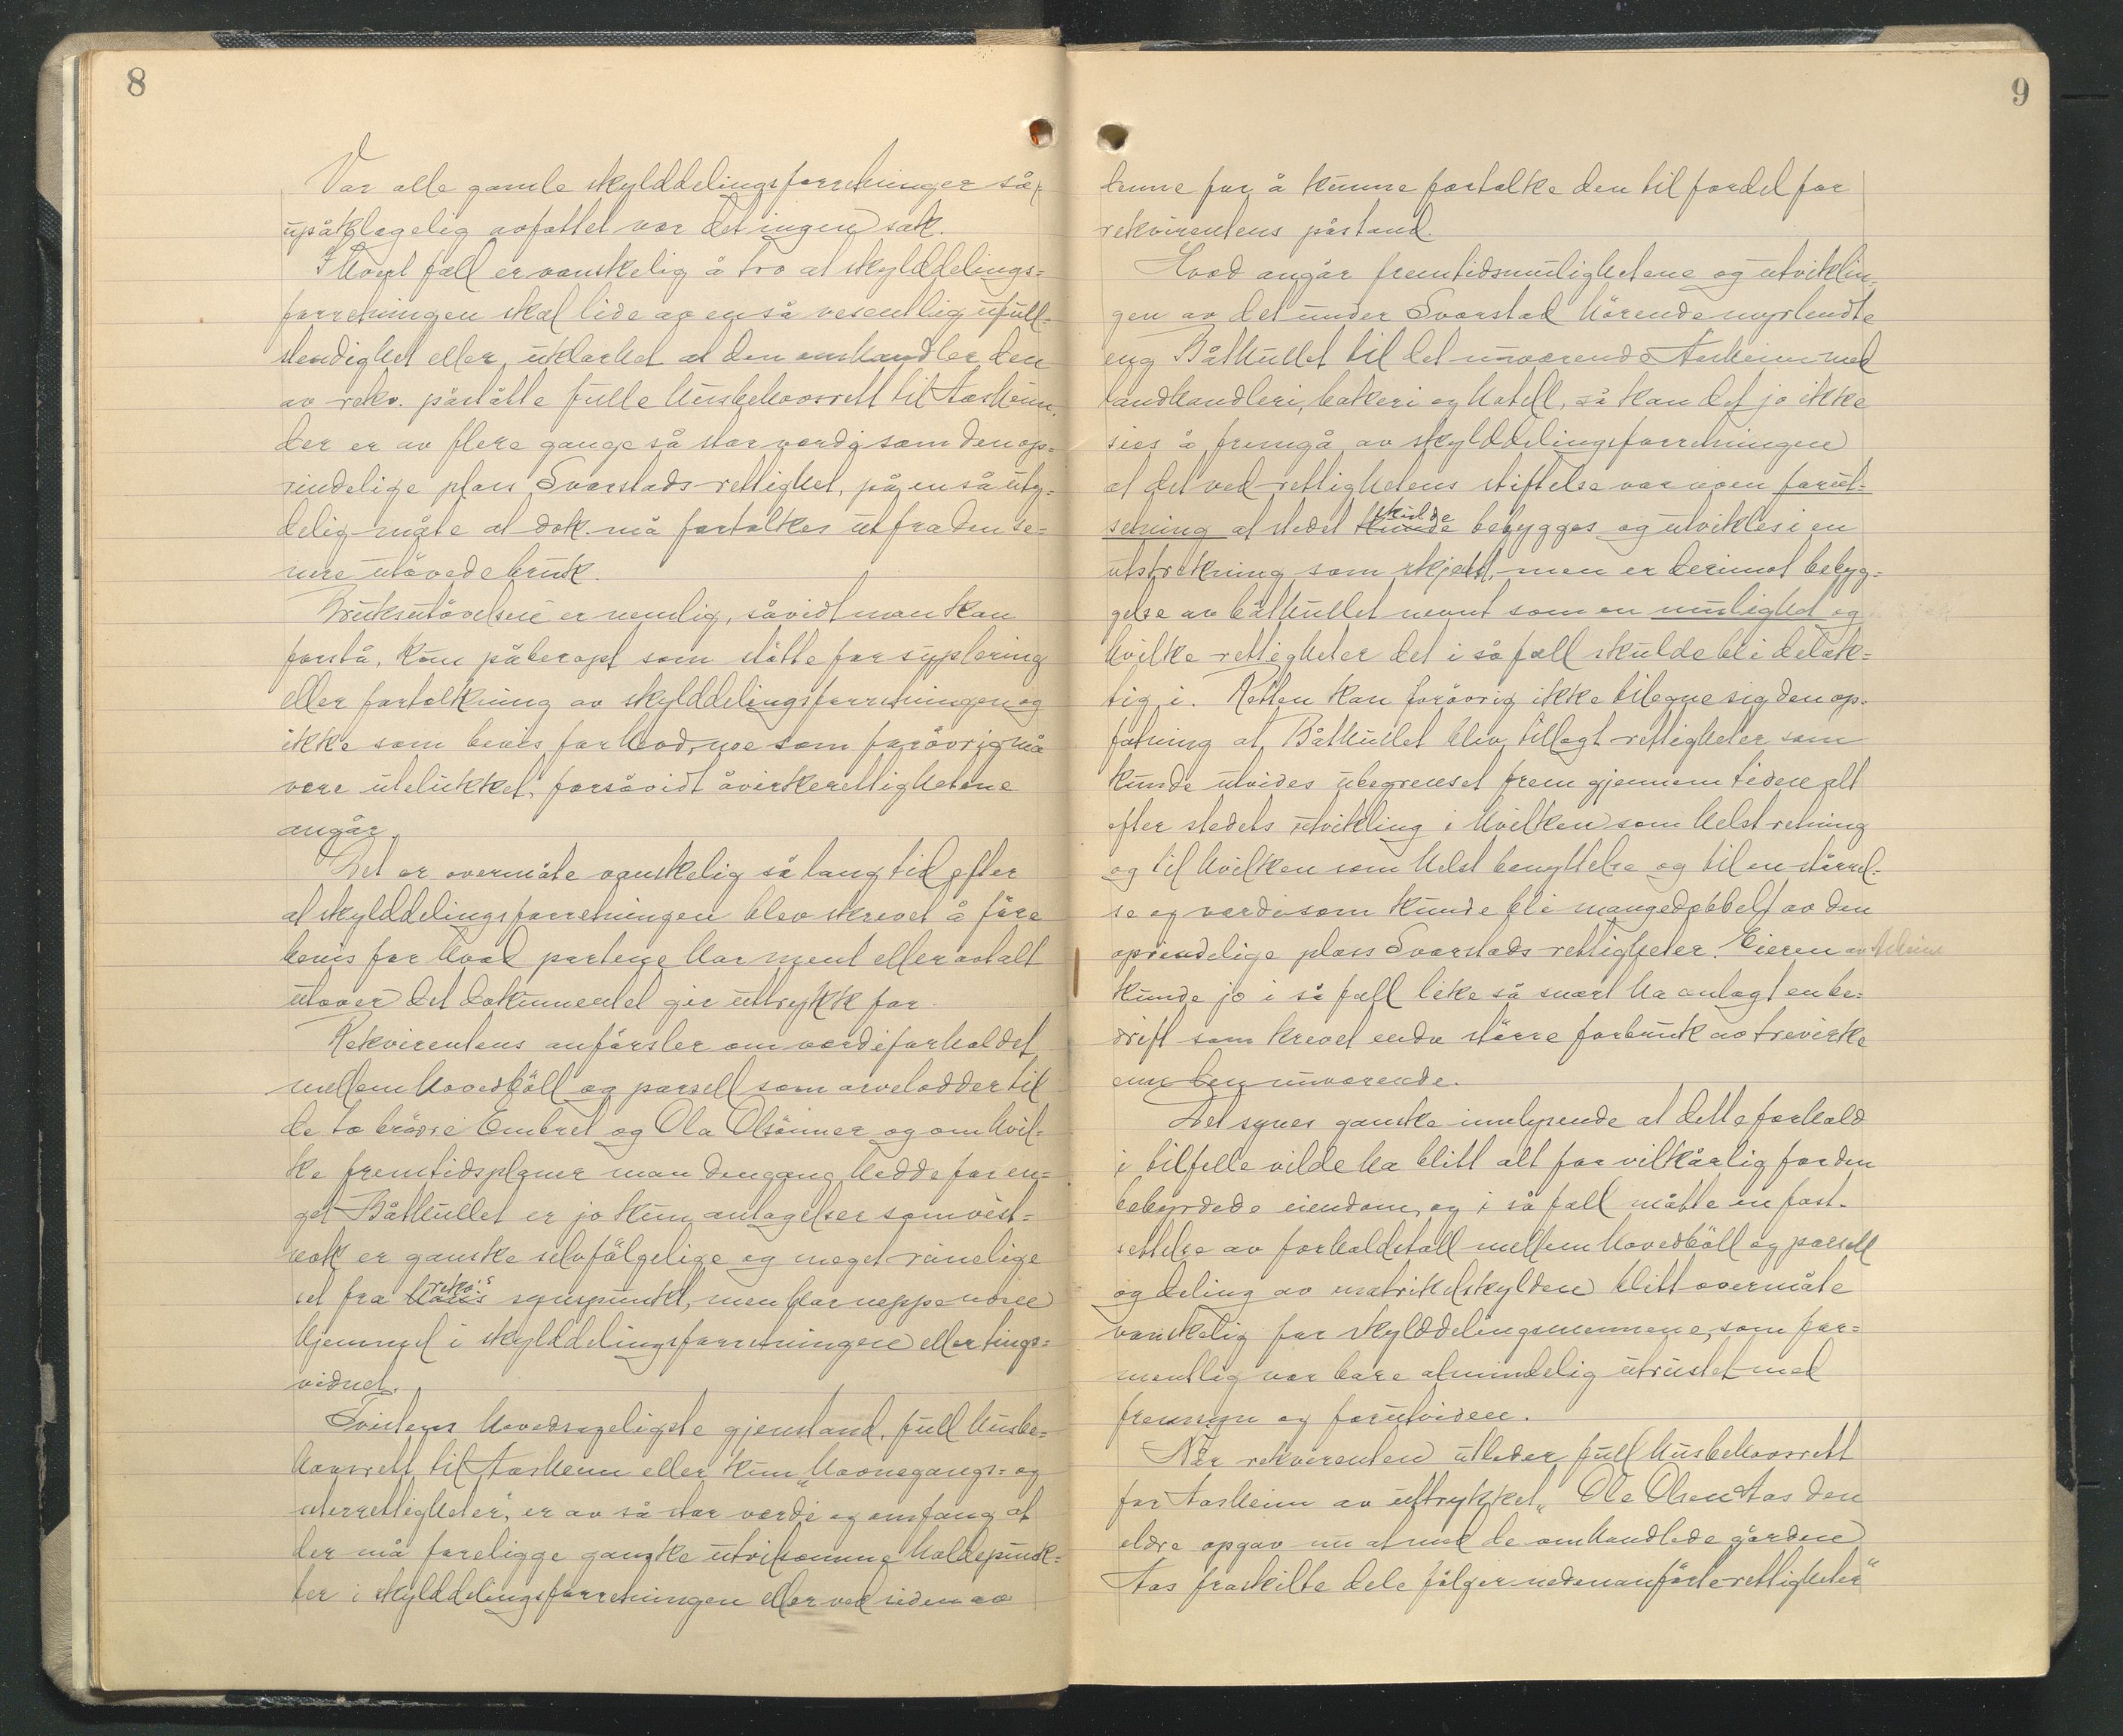 8
Var alle gamle skylddelingsforretninger så
upåklagelig avfattet var det ingen sak.
I hvert fall er vanskelig å tro at skylddelings=
forretningen skal lide av en så vesentlig ufull-
stendighet eller uklarhet at den omhandler den
av rekv. påståtte fulle husbehovsrett til Aasheim,
der er av flere gange så stor verdi som den op=
rindelige plass Svarstads-rettighet, på en så uty=
delig måte at dok. må fortolkes ut fra den se=
nere utövede bruk.
Bruksutövelsen er nemlig, såvidt man kan
forstå, kun påberopt som stötte for supplering
eller fortolkning av skylddelingsforretningen og
ikke som bevis for hevd, noe som forövrig må
være utelukket, forsåvidt åvirkerettighetene
angår.
Det er overmåte vanskelig så lang tid efter
at skylddelingsforretningen blev skrevet å före
bevis for hvad partene har ment eller avtalt
utover det dokumentet gir uttrykk for.
Rekvirentens anförsler om verdiforholdet
mellem hovedböll og parsell som arvelodder til
de to brödre Embret og Ola Olsönner og om hvil=
ke fremtidsplaner man dengang hadde for en=
get Båthullet er jo kun antagelser som vist=
nok er ganske selvfölgelige og meget rimelige
set fra hans rekv.'s synspunkt, men har neppe noen
hjemmel i skylddelingsforretningen eller tings=
vidnet.
Tvistens hovedsageligste gjenstand, full husbe=
hovsrett til Aasheim eller kun „havnegangs= og
seterrettigheter", er av så stor verdi og omfang at
der må foreligge ganske utvilsomme holdepunk=
ter i skylddelingsforretningen eller ved siden av
9
denne for å kunne fortolke den til fordel for
rekvirentens påstand.
Hvad angår fremtidsmulighetene og utviklin-
gen av det under Svarstad hörende myrlendte
eng Båthullet til det nuværende Aasheim med
landhandleri, bakeri og hotell, så kan det jo ikke
sies å fremgå av skylddelingsforretningen
at det ved rettighetens stiftelse var noen forut=
setning at stedet kunde skulde bebygges og utvikles i en
utstrekning som skjedd, men er derimot bebyg=
gelse av båthullet nevnt som en mulighet og
hvilke rettigheter det i så fall skulde bli delak=
tig i. Retten kan forövrig ikke tilegne sig den op-
fatning at Båthullet blev tillagt rettigheter som
kunde utvides ubegrenset frem gjennem tiden alt
efter stedets utvikling i hvilken som helst retning
og til hvilken som helst benyttelse og til en störrel-
se og verdi som kunde bli mangedobbelt av den
oprindelige plass Svarstads rettigheter. Eieren av Asheim
kunde jo i så fall like så snart ha anlagt en be=
drift som krevet endu större forbruk av trevirke
enn den nuværende.
Det synes ganske innlysende at dette forhold
i tilfelle vilde ha blitt alt for vilkårlig for den
bebyrdede eiendom, og i så fall måtte en fast-
settelse av forholdstall mellem hovedböll og parsell
og deling av matrikelskylden blitt overmåte
vanskelig for skylddelingsmennene, som for=
mentlig var bare almindelig utrustet med
fremsyn og forutviden.
Når rekvirenten utleder full husbehovsrett
for Aasheim av uttrykket „Ole Olsen Aas den
eldre opgav nu at med de omhandlede gården
Aas fraskilte dele fölger nedenanförte rettigheter"